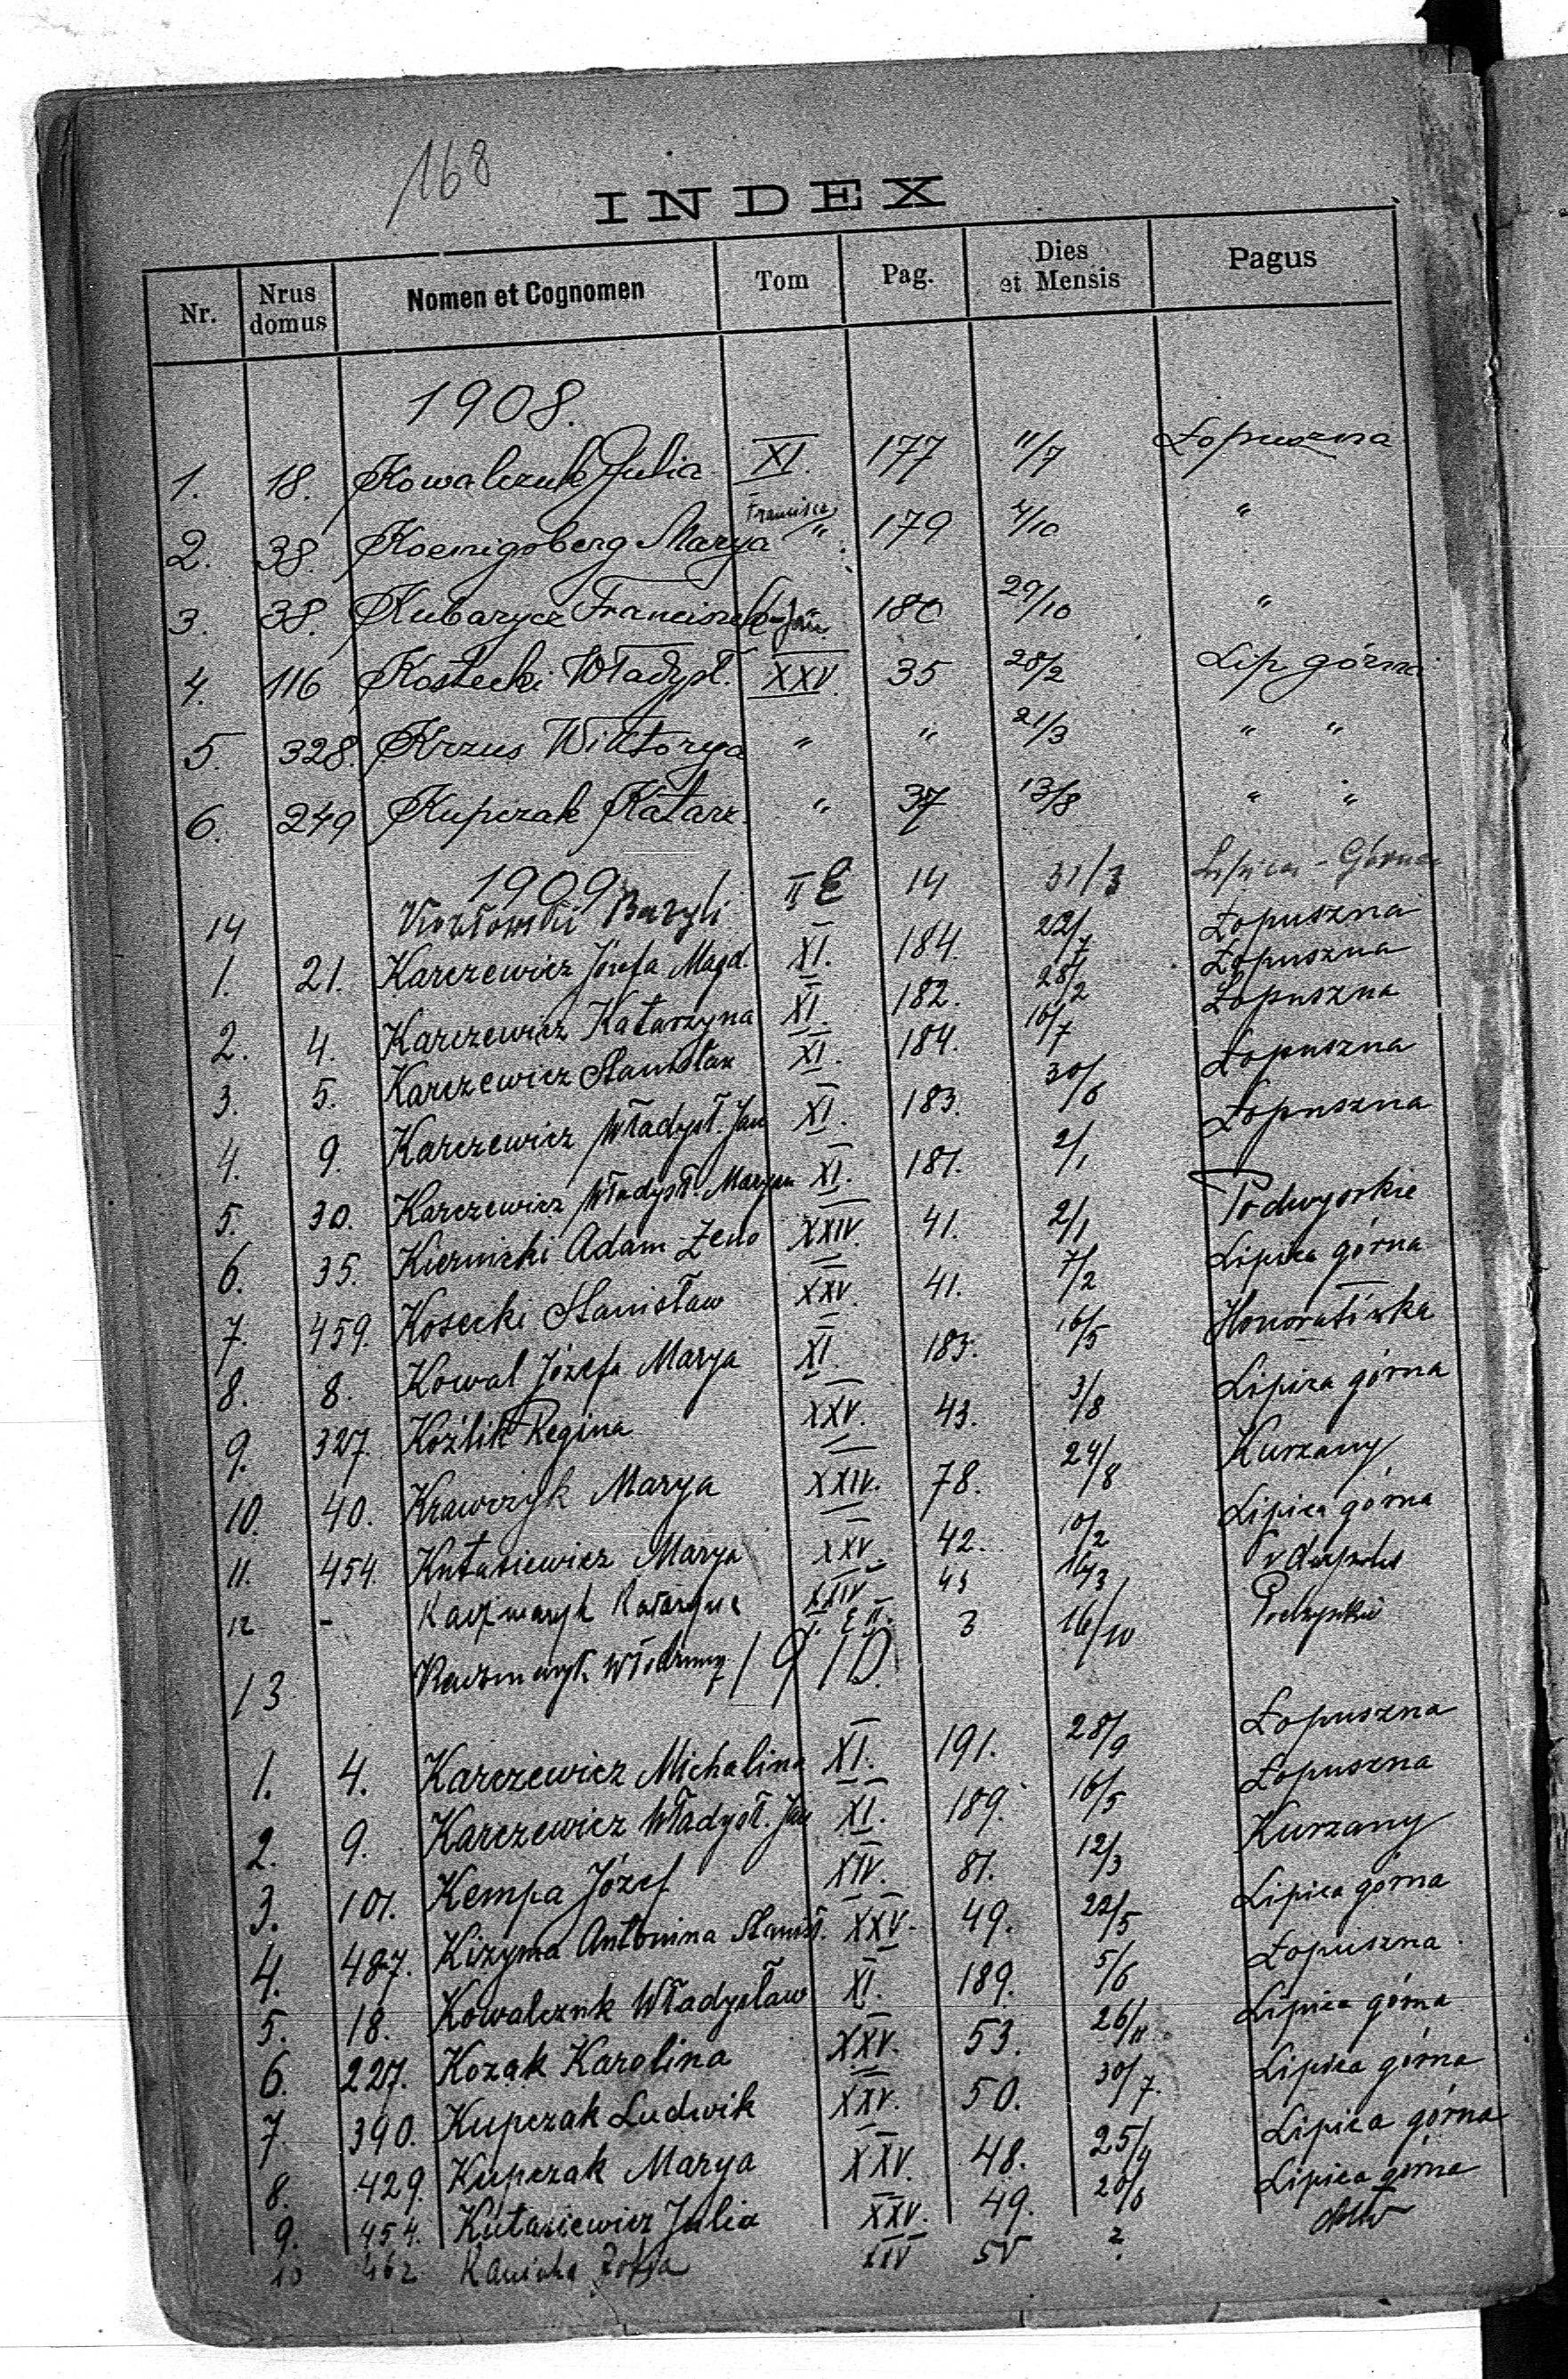 168
INDEX
Nr. Nrus domus Nomen et Cognomen Tom Pag. Dies et Mensis Pagus
1908.
1. 18. Kowalczuk Julia XI. 177 11/7 Łopuszna
2. 38. Koenigsberg Marya Francisca " 179 4/10 "
3. 38. Kubarycz Franciszek Jan 180 29/10 "
4. 116 Kostecki Władysł. XXV. 35 28/2 Lip górna
5. 328. Krzus Wiktorya " " 21/3 " "
6. 249 Kupczak Katarz. " 37 13/8 " "
1909
14 Kozłowski Bazyli II E 14 31/3 Lipica-Górna
1. 21. Karczewicz Józefa Magd. XI. 184. 22/7 Łopuszna
2. 4. Karczewicz Katarzyna XI. 182. 28/2 Łopuszna
3. 5. Karczewicz Stanisław XI. 184. 16/7 Łopuszna
4. 9. Karczewicz Władysł. Jan XI. 183. 30/6 Łopuszna
5. 30. Karczewicz Władysł. Maryan XI. 181. 2/1 Łopuszna
6. 35. Kiernicki Adam Zeno XXIV. 41. 2/1 Podwysokie
7. 459. Kosecki Stanisław XXV. 41. 7/2 Lipica górna
8. 8. Kowal Józefa Marya XI. 183. 16/5 Honoratówka
9. 327. Koźlik Regina XXV. 43. 3/8 Lipica górna
10. 40. Krawczyk Marya XXIV. 78. 24/8 Kurzany
11. 454. Kutasiewicz Marya XXV. 42. 10/2 Lipica górna
12 - Kaczmaryk Katarzyna XXIV 43 16/3
13 Kaczmaryk Włodzimy I. E II. 3 16/10
1910.
1. 4. Karczewicz Michalina XI. 191. 28/9 Łopuszna
2. 9. Karczewicz Władysł. Jan XI. 189. 16/5 Łopuszna
3. 101. Kempa Józef XIV. 81. 12/3 Kurzany
4. 487. Kizyma Antonina Stanisł. XXV. 49. 22/5 Lipica górna
5. 18. Kowalczuk Władysław XI. 189. 5/6 Łopuszna
6. 227. Kozak Karolina XXV. 53. 26/11 Lipica górna
7. 390. Kupczak Ludwik XXV. 50. 30/7. Lipica górna
8. 429. Kupczak Marya XXV. 48. 25/4 Lipica górna
9. 454. Kutasiewicz Julia XXV. 49. 20/6 Lipica górna
10 462 Zofia XIV ?